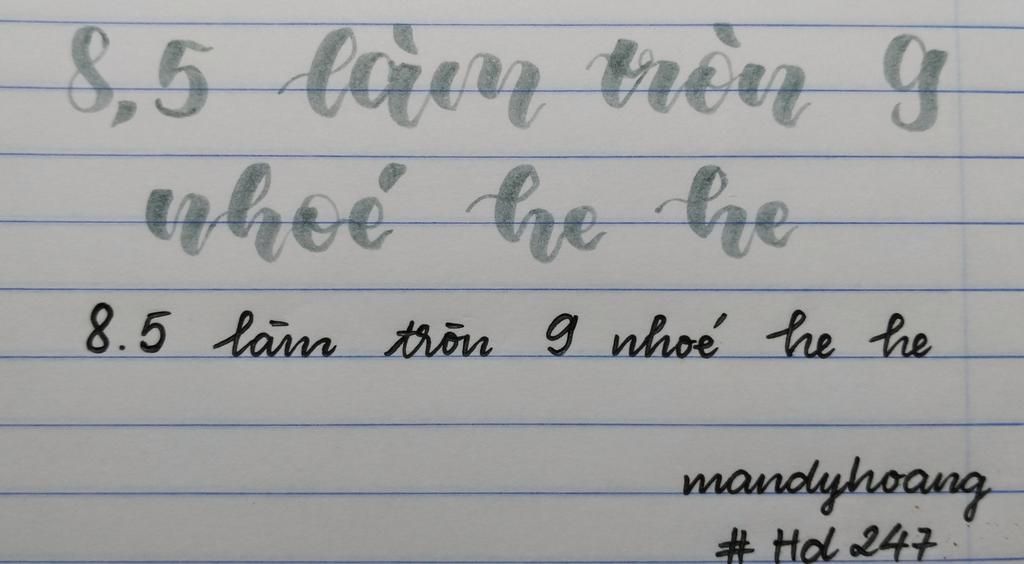 8,5 làm tròn 9
nhoé he he
8.5 làm tròn 9 nhoé he he
mandyhoang
# Hd 247